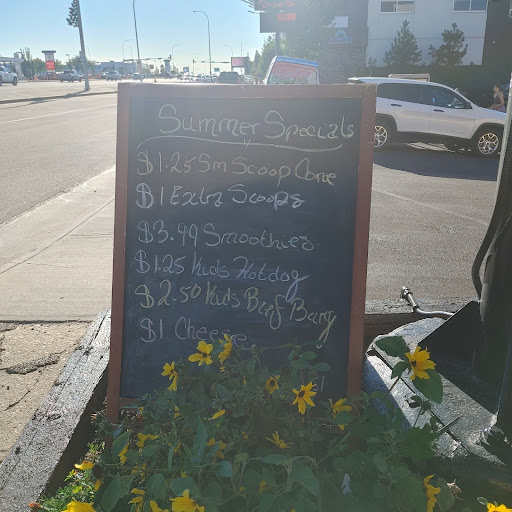 Summer Specials
$1.25 Sm Scoop Cone
$1 Extra Scoops
$3.49 Smoothies
$1.25 Kids Hotdog
$2.50 Kids Beef Burg
$1 Cheese